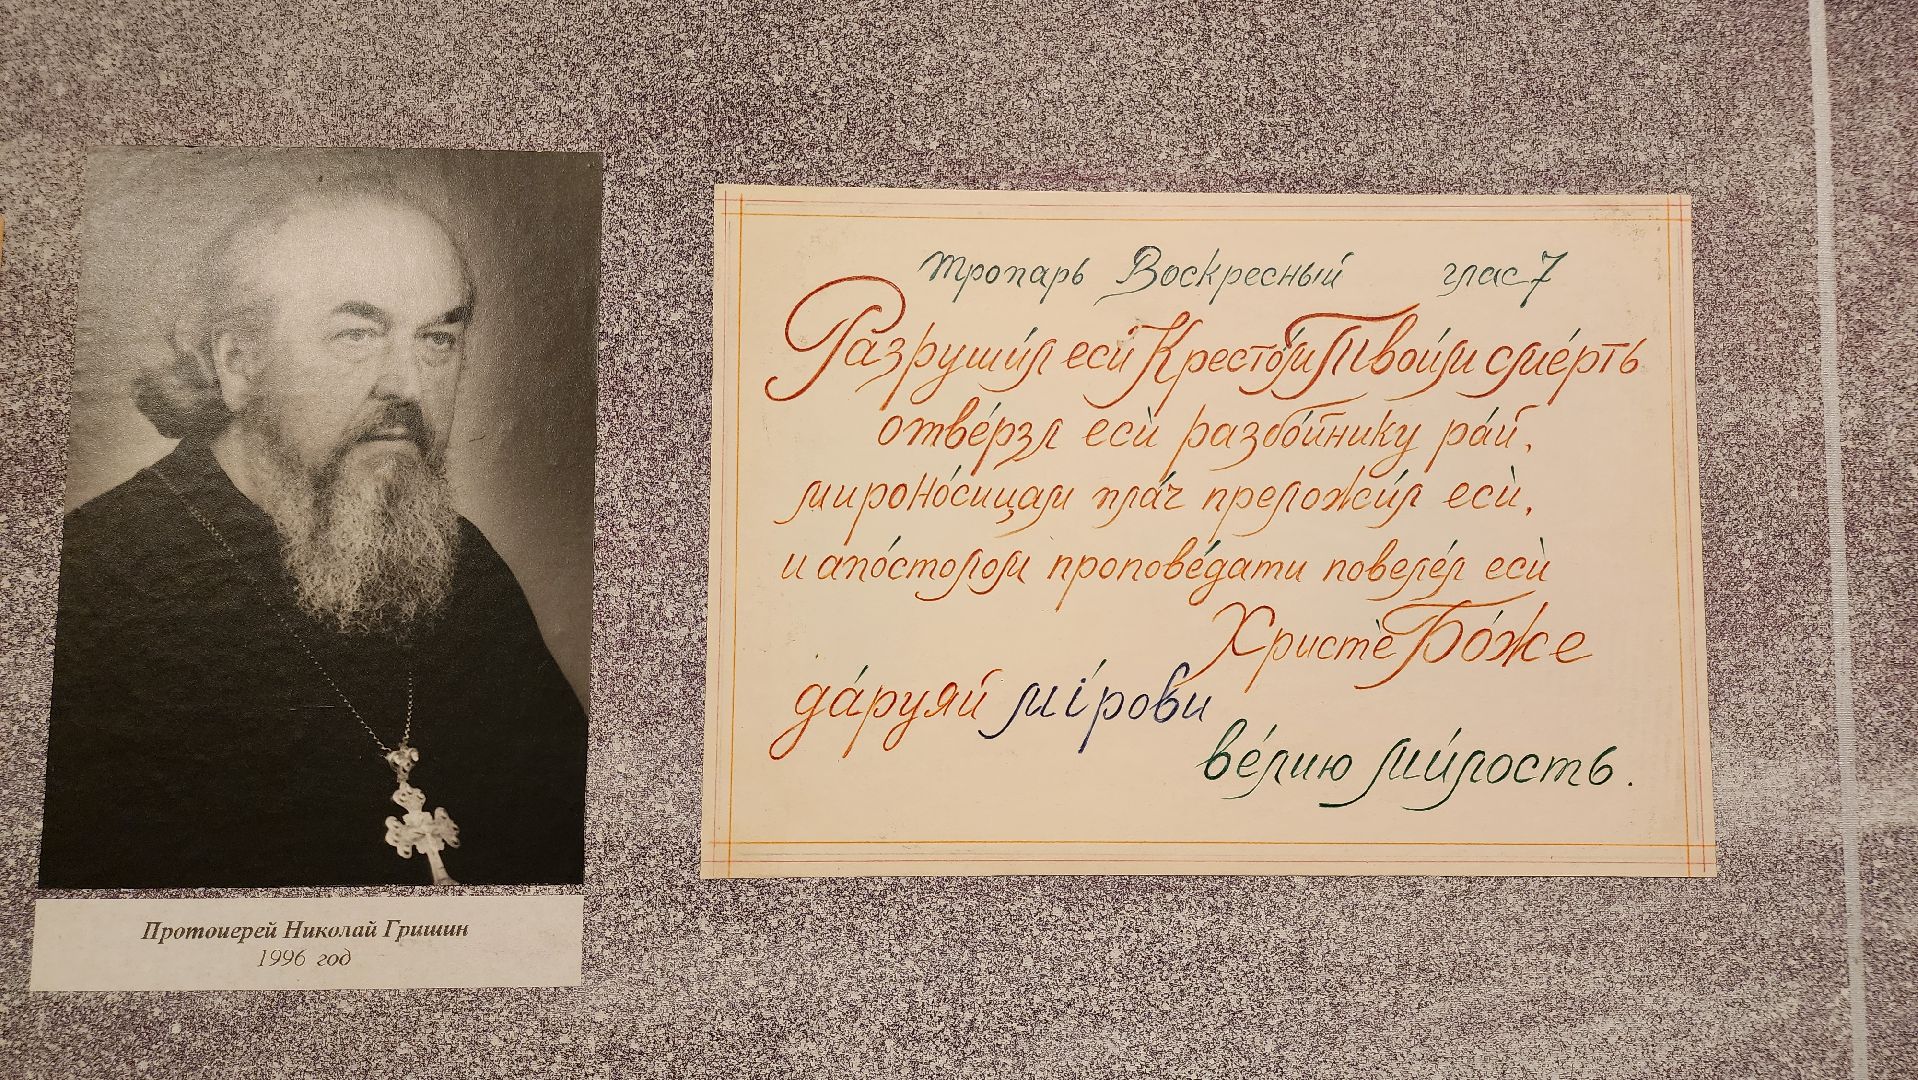 Протоиерей Николай Гришин
1996 год
тропарь Воскресный глас 7
Разруши́л еси̇̀ Кресто́м Твои́м сме́рть
отве́рзл еси̇̀ разбо́йнику ра́й,
мироно́сицам пла́ч преложи́л еси̇̀,
и апо́столом пропове́дати повеле́л еси̇̀
Христѐ Бо́же
да́руяй мі́рови
ве́лию ми́лость.